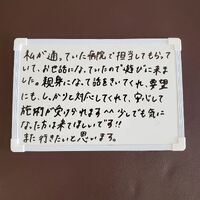 私が通っていた病院で担当してもらって
いて、お世話になっていたので遊びに来ま
した。親身になって話をきいてくれ、要望
にも、しっかりと対応してくれて、安心して
施術が受けられます^^少しでも気に
なった方は来てほしいです!!
また行きたいと思います。